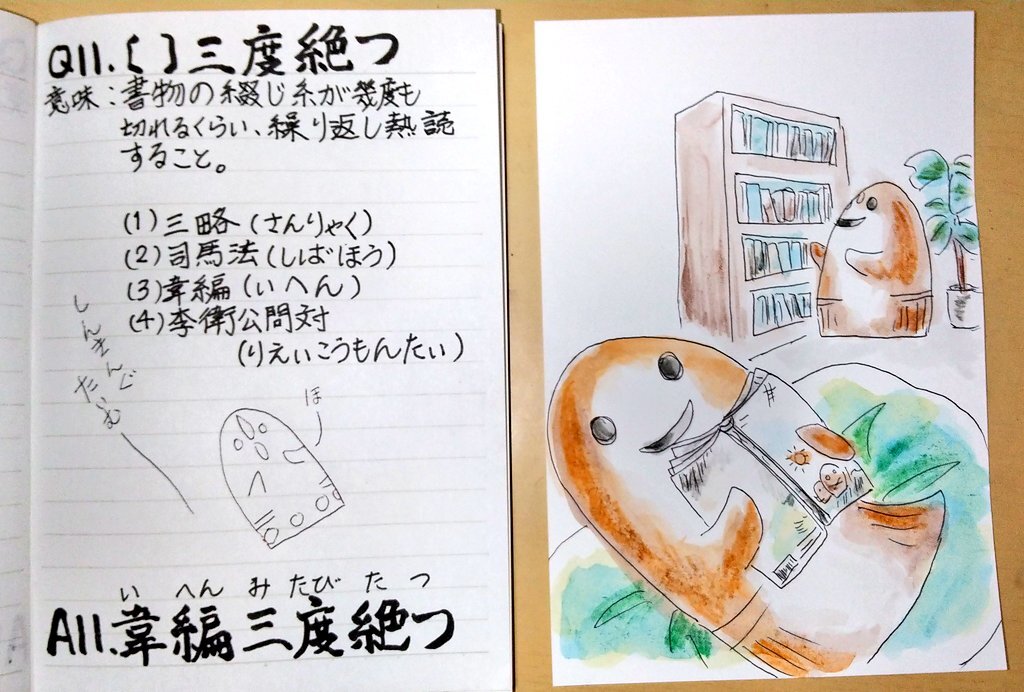 Q11.〔 〕三度絶つ
意味：書物の綴じ糸が幾度も
切れるくらい、繰り返し熱読
すること。
(1)三略(さんりゃく)
(2)司馬法(しばほう)
(3)韋編(いへん)
(4)李衛公問対
(りえいこうもんたい)
しんきんぐ
たいむ
ほ
い へん み たび た つ
A11.韋編三度絶つ